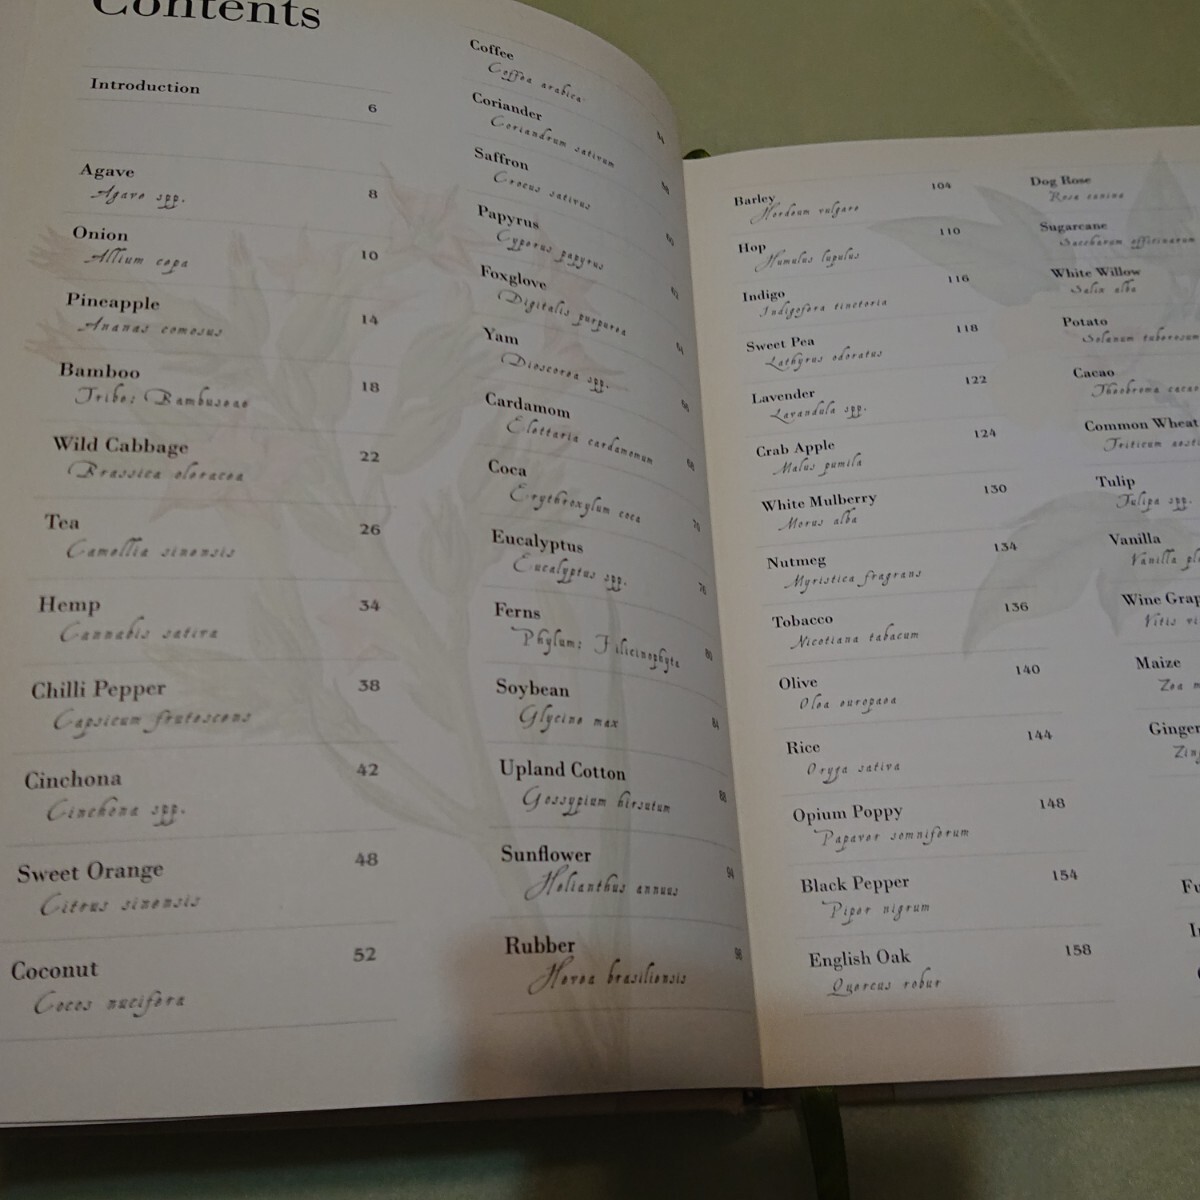 Contents
Introduction
6
Agave
8
Agave spp.
Onion
10
Allium cepa
Pineapple
14
Ananas comosus
Bamboo
18
Tribe: Bambuseae
Wild Cabbage
22
Brassica oleracea
Tea
26
Camellia sinensis
Hemp
34
Cannabis sativa
Chilli Pepper
38
Capsicum frutescens
Cinchona
42
Cinchona spp.
Sweet Orange
48
Citrus sinensis
Coconut
52
Cocos nucifera
Coffee
Coffea arabica
Coriander
Coriandrum sativum
Saffron
Crocus sativus
Papyrus
Cyperus papyrus
Foxglove
Digitalis purpurea
Yam
Dioscorea spp.
Cardamom
Elettaria cardamomum
Coca
Erythroxylum coca
Eucalyptus
Eucalyptus spp.
Ferns
Phylum: Filicinophyta
Soybean
Glycine max
Upland Cotton
Gossypium hirsutum
Sunflower
Helianthus annuus
Rubber
Hevea brasiliensis
Barley
104
Hordeum vulgare
Hop
110
Humulus lupulus
Indigo
116
Indigofera tinctoria
Sweet Pea
118
Lathyrus odoratus
Lavender
122
Lavandula spp.
Crab Apple
124
Malus pumila
White Mulberry
130
Morus alba
Nutmeg
134
Myristica fragrans
Tobacco
136
Nicotiana tabacum
Olive
140
Olea europaea
Rice
144
Oryza sativa
Opium Poppy
148
Papaver somniferum
Black Pepper
154
Piper nigrum
English Oak
158
Quercus robur
Dog Rose
Rosa canina
Sugarcane
Saccharum officinarum
White Willow
Salix alba
Potato
Solanum tuberosum
Cacao
Theobroma cacao
Common Wheat
Triticum aesti
Tulip
Tulipa spp.
Vanilla
Vanilla pl
Wine Grap
Vitis vi
Maize
Zea m
Ginger
Zin
Fu